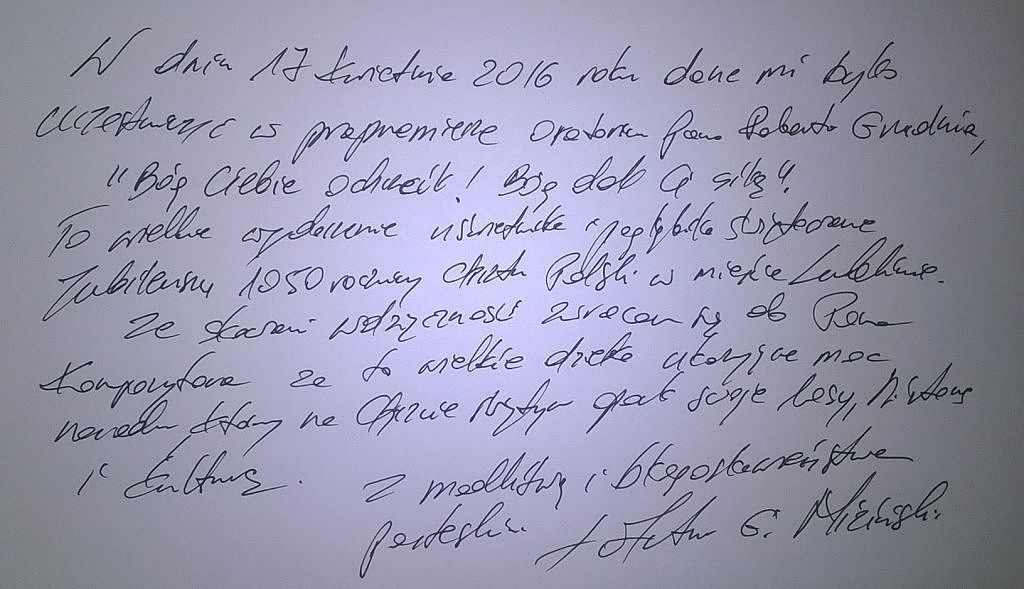 W dniu 17 kwietnia 2016 roku dane mi było
uczestniczyć w prapremierze Oratorium Pana Roberta Grudnia,
"Bóg Ciebie ochrzcił! Bóg dał Ci siłę".
To wielkie wydarzenie uświetniło i pogłębiło świętowanie
Jubileuszu 1050 rocznicy Chrztu Polski w mieście Lublinie.
Ze słowami wdzięczności zwracam się do Pana
Kompozytora za to wielkie dzieło ukazujące moc
narodu, który na Chrzcie Świętym oparł swoje losy, historię
i kulturę.
Z modlitwą i błogosławieństwem
pasterskim. + Artur G. Miziński.